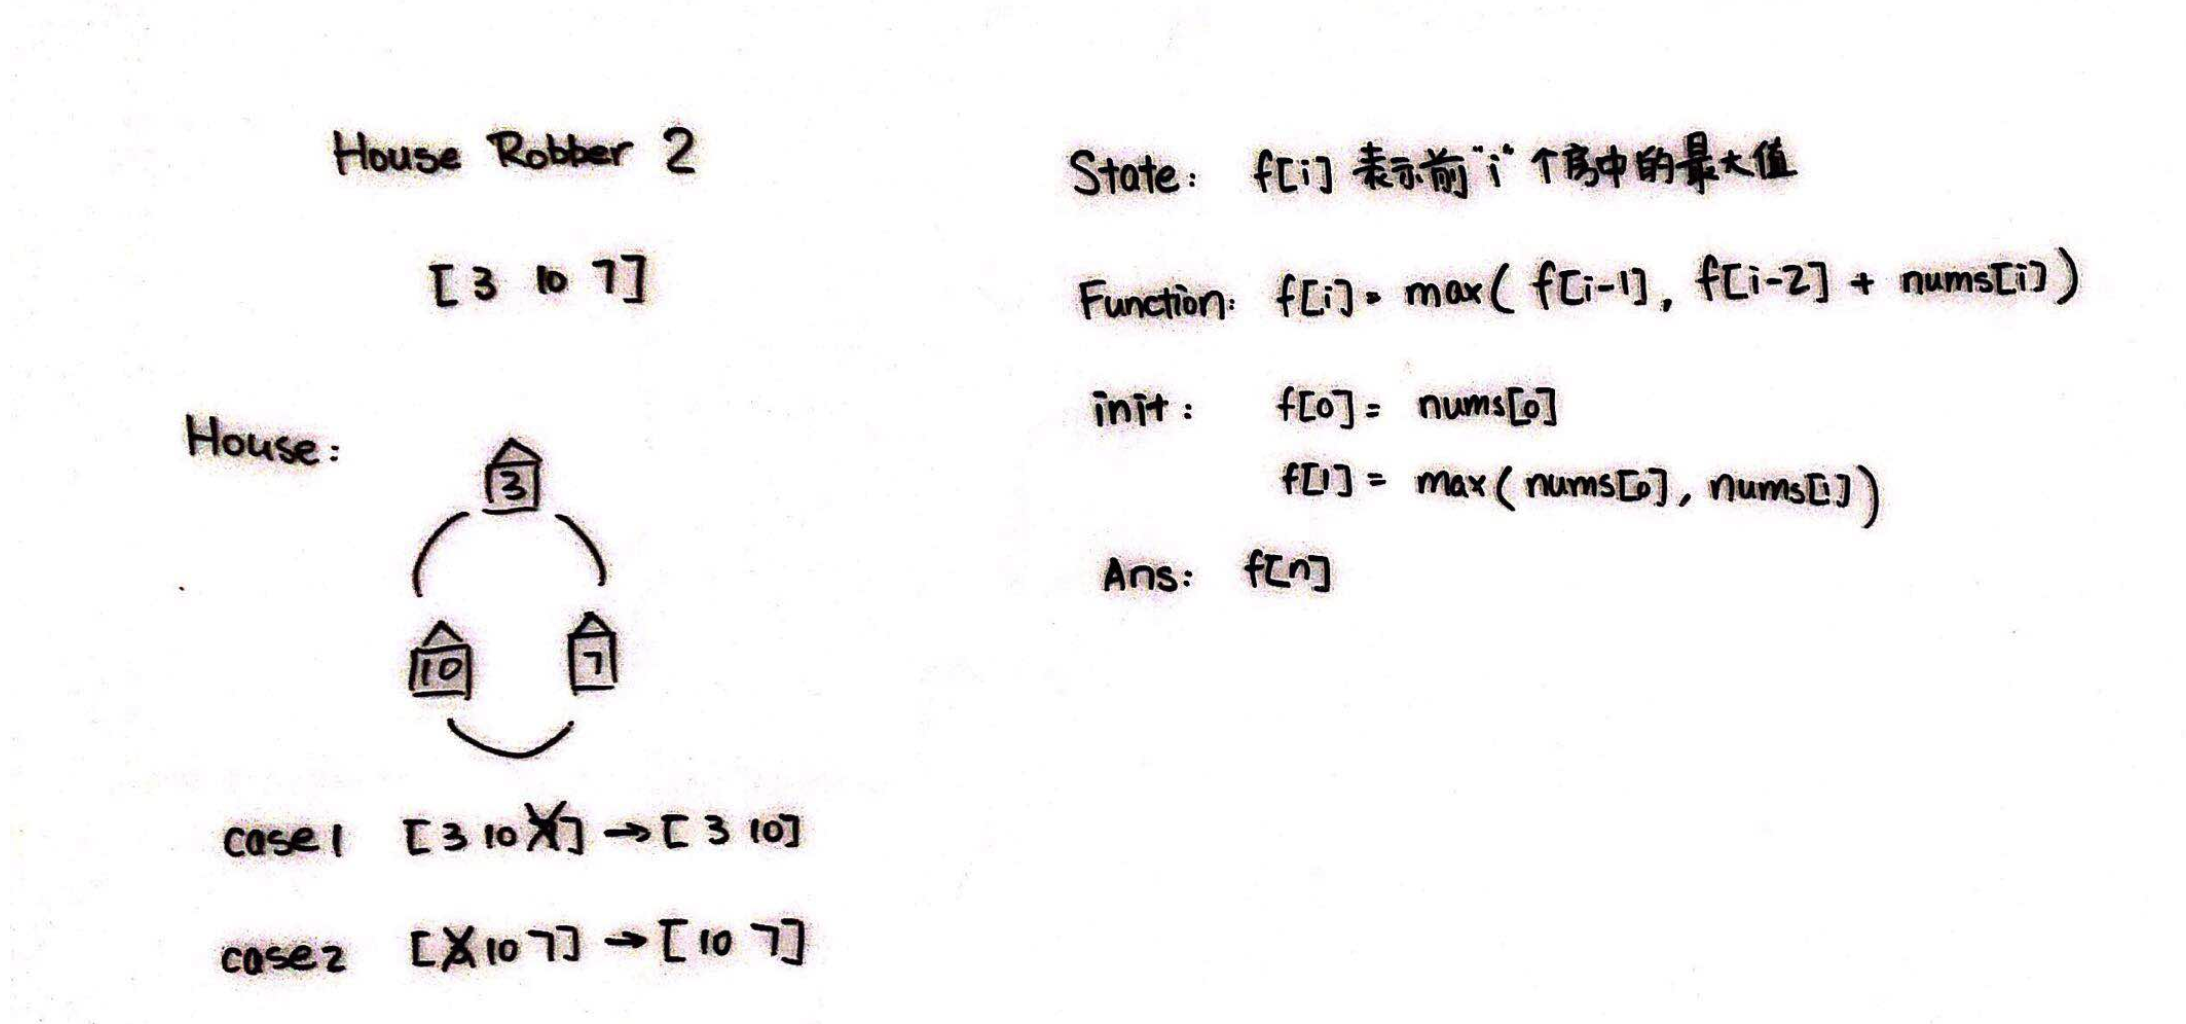 House Robber 2
[ 3 10 7]
House:
3
10
7
case1 [ 3 10 X] → [ 3 10]
case2 [X 10 7] → [ 10 7]
State: f[i] 表示前"i"个房中的最大值
Function: f[i] = max( f[i-1], f[i-2] + nums[i])
init: f[0] = nums[0]
f[1] = max( nums[0], nums[1])
Ans: f[n]